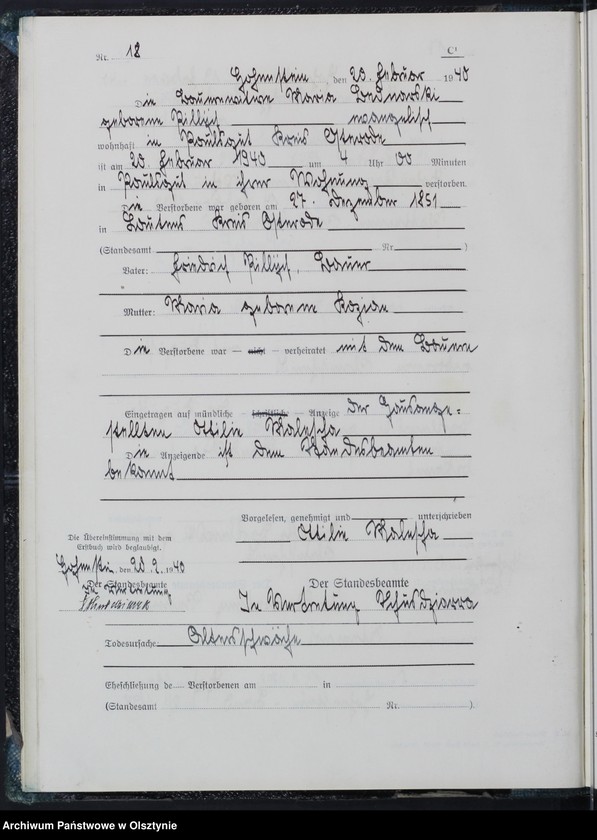 Nr. 12 C¹
Hohenstein, den 20. Februar 1940
Die Bauernwitwe Maria Bednarski
geborene Pillzich evangelisch
wohnhaft in Paulsgut Kreis Osterode
ist am 20. Februar 1940 um 4 Uhr 00 Minuten
in Paulsgut in ihrer Wohnung verstorben.
Die Verstorbene war geboren am 27. Dezember 1851
in Lautens Kreis Osterode
(Standesamt Nr. )
Vater: Friedrich Pillzich, Bauer
Mutter: Maria geborene Kozian
Die Verstorbene war — nicht — verheiratet mit dem Bauern
Eingetragen auf mündliche — schriftliche — Anzeige der Hausange=
stellten Ottilie
Die Anzeigende ist dem Standesbeamten
bekannt
Vorgelesen, genehmigt und unterschrieben
Ottilie
Die Übereinstimmung mit dem
Erstbuch wird beglaubigt.
Hohenstein, den 20. 2. 1940
Der Standesbeamte
In Vertretung
Der Standesbeamte
In Vertretung
Todesursache Altersschwäche
Eheschließung de Verstorbenen am in
(Standesamt Nr. )
Archiwum Państwowe w Olsztynie